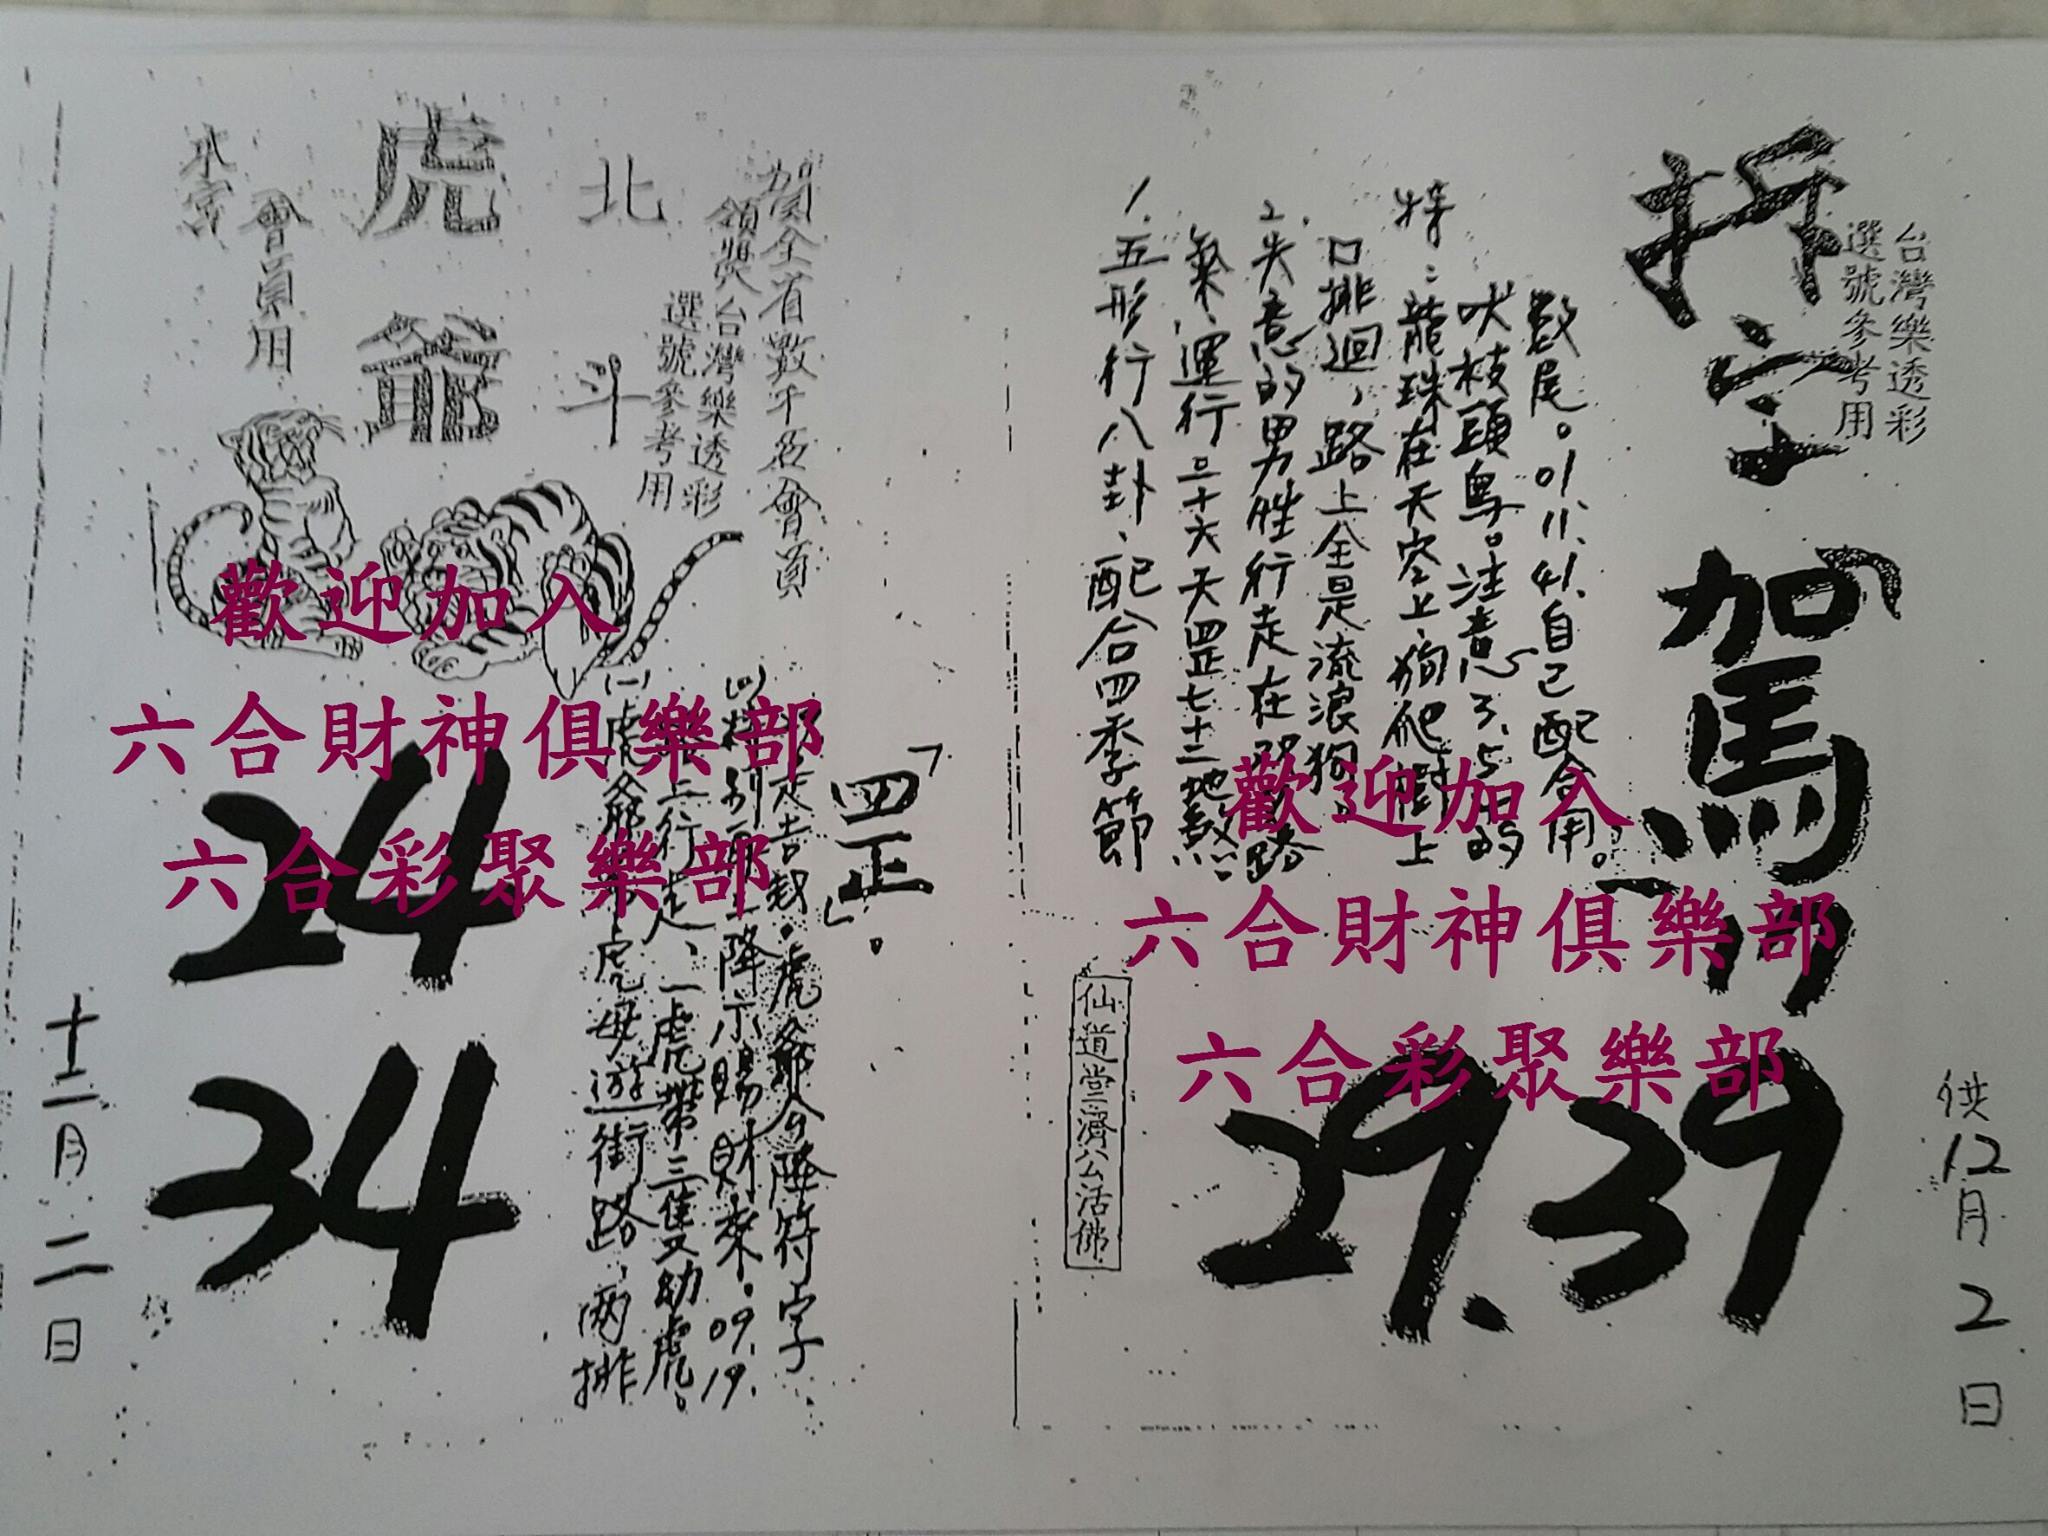 台灣樂透彩
選號參考用
拆字
駕
供12月2日
29.39
數尾。01.11.41.自己配合用。
吠枝頭鳥。注意3.5的
特:龍珠在天空上,狗爬樹上
口排迴,路上全是流浪狗
2.失意的男性行走在
路
氣,運行三十六天罡七十二地煞.
1.五形行八卦、配合四季節
仙道堂濟公活佛
歡迎加入
六合財神俱樂部
六合彩聚樂部
賀全省數千名會員
領獎
台灣樂透彩
選號參考用
北斗
虎爺
會員用
「四正」。
虎爺公降符字
降示賜財來。09.19.
行走、一虎帶三隻幼虎。
(一)虎爺
虎母遊街路,兩排
24
34
十二月二日
歡迎加入
六合財神俱樂部
六合彩聚樂部